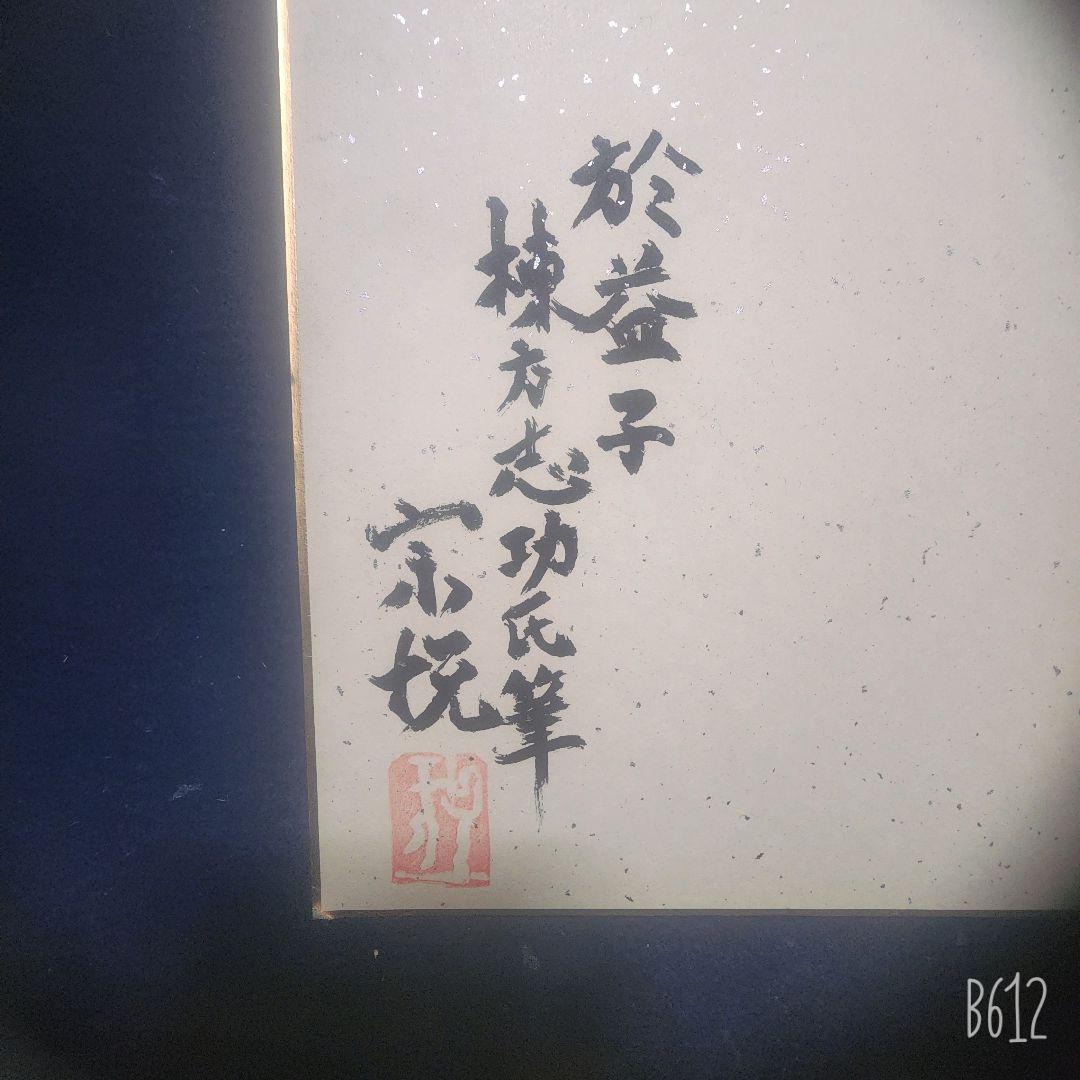 於益子
棟方志功氏筆
宗悦
B612